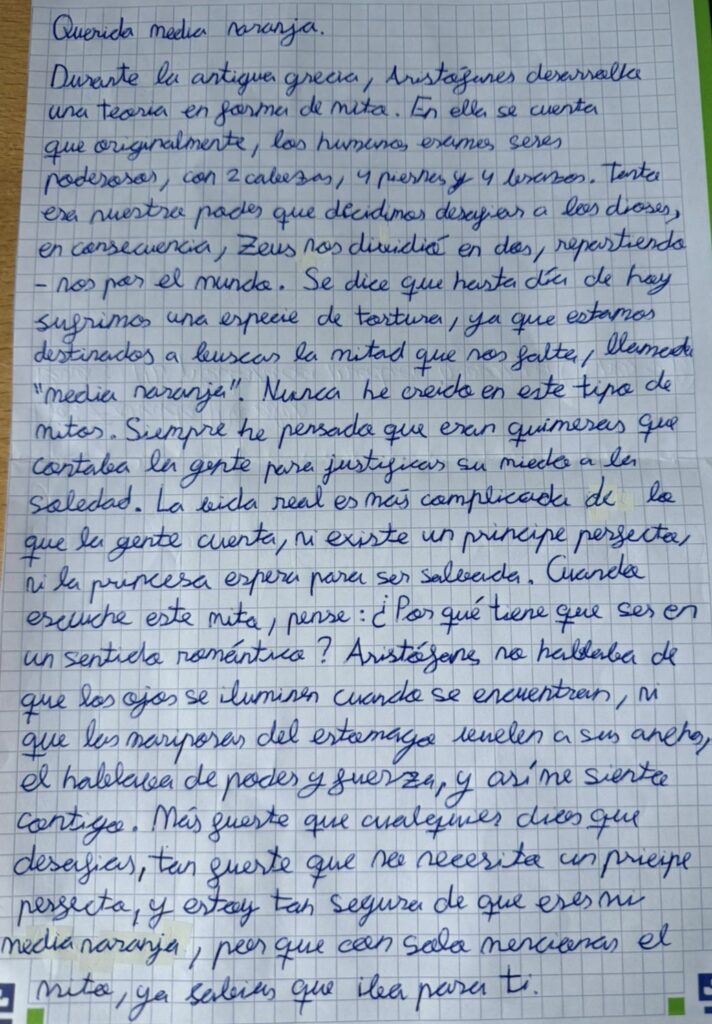 Querida media naranja.
Durante la antigua grecia, Aristófanes desarrolla
una teoria en forma de mito. En ella se cuenta
que originalmente, los humanos eramos seres
poderosos, con 2 cabezas, 4 piernas y 4 brazos. Tanto
era nuestro poder que decidimos desafiar a los dioses,
en consecuencia, Zeus nos dividió en dos, repartiendo
- nos por el mundo. Se dice que hasta día de hoy
sufrimos una especie de tortura, ya que estamos
destinados a buscar la mitad que nos falta, llamada
"media naranja". Nunca he creido en este tipo de
mitos. Siempre he pensado que eran quimeras que
contaba la gente para justificar su miedo a la
soledad. La vida real es más complicada de lo
que la gente cuenta, ni existe un principe perfecto,
ni la princesa espera para ser salvada. Cuando
escuche este mito, pense: ¿Por qué tiene que ser en
un sentido romántico? Aristófanes no hablaba de
que los ojos se iluminen cuando se encuentran, ni
que las mariposas del estomago vuelen a sus anchas,
el hablava de poder y fuerza, y así me siento
contigo. Más fuerte que cualquier dios que
desafiar, tan fuerte que no necesito un pricipe
perfecto, y estoy tan segura de que eres mi
media naranja, por que con solo mencionar el
mito, ya sabias que iba para ti.